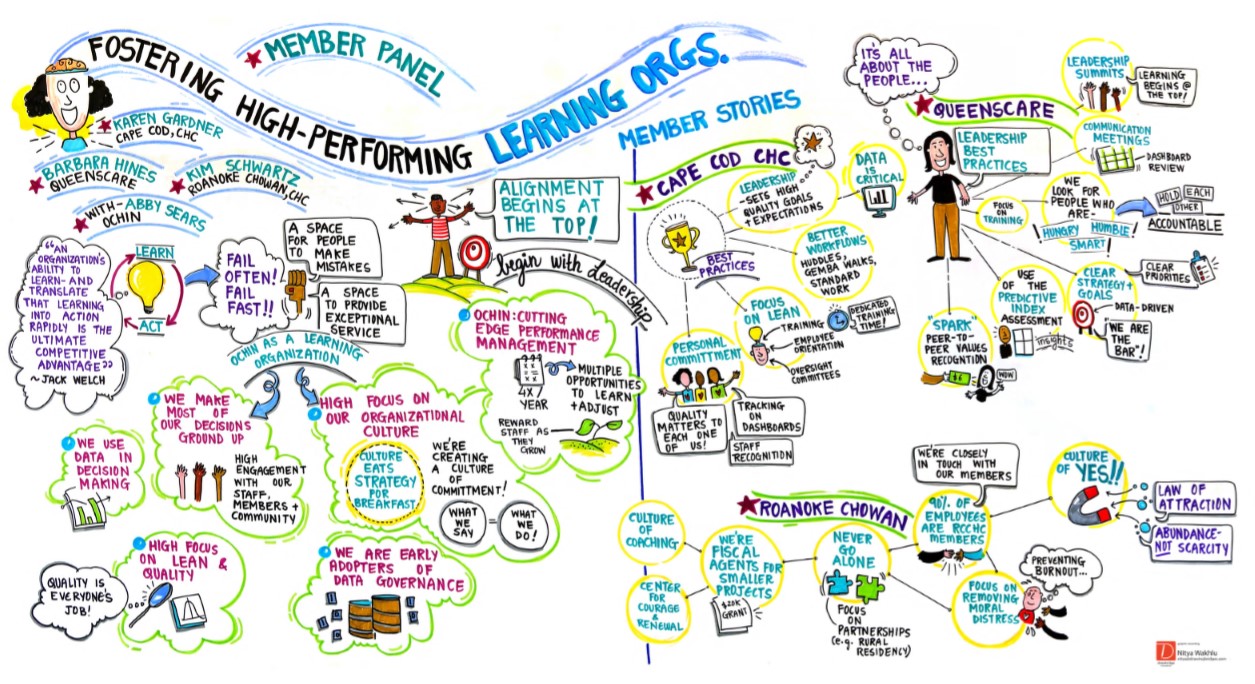 FOSTERING HIGH-PERFORMING LEARNING ORGS.
MEMBER PANEL
KAREN GARDNER
CAPE COD, CHC
BARBARA HINES
QUEENSCARE
KIM SCHWARTZ
ROANOKE CHOWAN, CHC
WITH-ABBY SEARS
OCHIN
"AN
ORGANIZATION'S
ABILITY TO
LEARN- AND
TRANSLATE
THAT LEARNING
INTO ACTION
RAPIDLY IS THE
ULTIMATE
COMPETITIVE
ADVANTAGE"
~JACK WELCH
LEARN
ACT
FAIL
OFTEN!
FAIL
FAST!!
A SPACE
FOR PEOPLE
TO MAKE
MISTAKES
A SPACE
TO PROVIDE
EXCEPTIONAL
SERVICE
ALIGNMENT
BEGINS AT
THE TOP!
begin with leadership
OCHIN AS A LEARNING
ORGANIZATION
OCHIN: CUTTING
EDGE PERFORMANCE
MANAGEMENT
4X/
YEAR
MULTIPLE
OPPORTUNITIES
TO LEARN
+ADJUST
REWARD
STAFF AS
THEY
GROW
WE MAKE
MOST OF
OUR DECISIONS
GROUND UP
HIGH
ENGAGEMENT
WITH OUR
STAFF,
MEMBERS +
COMMUNITY
HIGH FOCUS ON
OUR ORGANIZATIONAL
CULTURE
CULTURE
EATS
STRATEGY
FOR
BREAKFAST
WE'RE
CREATING
A CULTURE
OF
COMMITMENT!
WHAT
WE
SAY
=
WHAT
WE
DO!
WE USE
DATA IN
DECISION
MAKING
HIGH FOCUS
ON LEAN &
QUALITY
QUALITY IS
EVERYONE'S
JOB!
WE ARE EARLY
ADOPTERS OF
DATA GOVERNANCE
MEMBER STORIES
CAPE COD CHC
LEADERSHIP
-SETS HIGH
QUALITY GOALS
+ EXPECTATIONS
DATA
IS
CRITICAL
BEST
PRACTICES
BETTER
WORKFLOWS
HUDDLES,
GEMBA WALKS,
STANDARD
WORK
FOCUS
ON LEAN
TRAINING
EMPLOYEE
ORIENTATION
OVERSIGHT
COMMITTEES
DEDICATED
TRAINING
TIME!
PERSONAL
COMMITTMENT
QUALITY
MATTERS TO
EACH ONE
OF US!
TRACKING
ON
DASHBOARDS
STAFF
RECOGNITION
IT'S ALL
ABOUT THE
PEOPLE...
QUEENSCARE
LEADERSHIP
BEST
PRACTICES
LEADERSHIP
SUMMITS
LEARNING
BEGINS @
THE TOP!
COMMUNICATION
MEETINGS
DASHBOARD
REVIEW
FOCUS
ON
TRAINING
WE
LOOK FOR
PEOPLE WHO
ARE-
HUNGRY HUMBLE
SMART!
HOLD EACH
OTHER
ACCOUNTABLE
CLEAR
STRATEGY+
GOALS
CLEAR
PRIORITIES
DATA-DRIVEN
"WE ARE
THE
BAR"!
USE
OF THE
PREDICTIVE
INDEX
ASSESSMENT
insights
"SPARK"
PEER-TO
PEER VALUES
RECOGNTION
$6
WOW
ROANOKE CHOWAN
CULTURE
OF
COACHING
CENTER
FOR
COURAGE
&
RENEWAL
WE'RE
FISCAL
AGENTS FOR
SMALLER
PROJECTS
$20K
GRANT
NEVER
GO
ALONE
FOCUS
ON
PARTNERSHIPS
(e.g. RURAL
RESIDENCY)
WE'RE CLOSELY
IN TOUCH WITH
OUR MEMBERS
90% OF
EMPLOYEES
ARE RCCHC
MEMBERS
CULTURE
OF YES!!
LAW OF
ATTRACTION
ABUNDANCE-
NOT SCARCITY
FOCUS ON
REMOVING
MORAL
DISTRESS
PREVENTING
BURNOUT...
Nitya Wakhlu